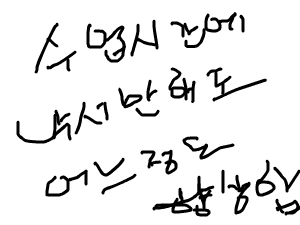 수업시간에
낙서만해도
어느정도
쌉가능